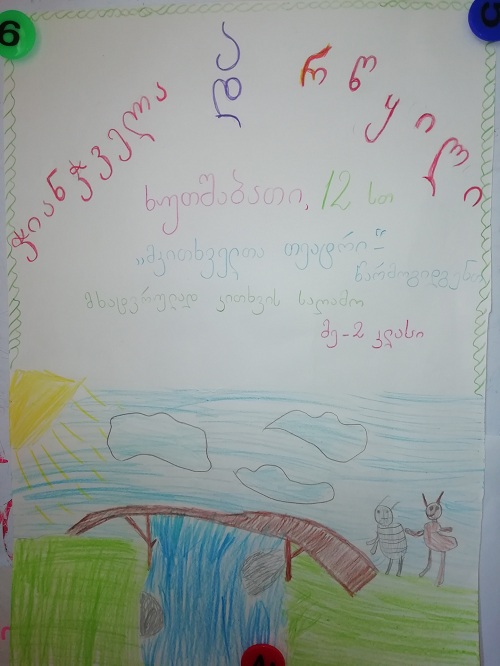 ჭიანჭველა
და
რწყილი
ხუთშაბათი, 12 სთ
„მკითხველთა თეატრი"
წარმოგიდგენთ
მხატვრულად კითხვის საღამო
მე-2 კლასი